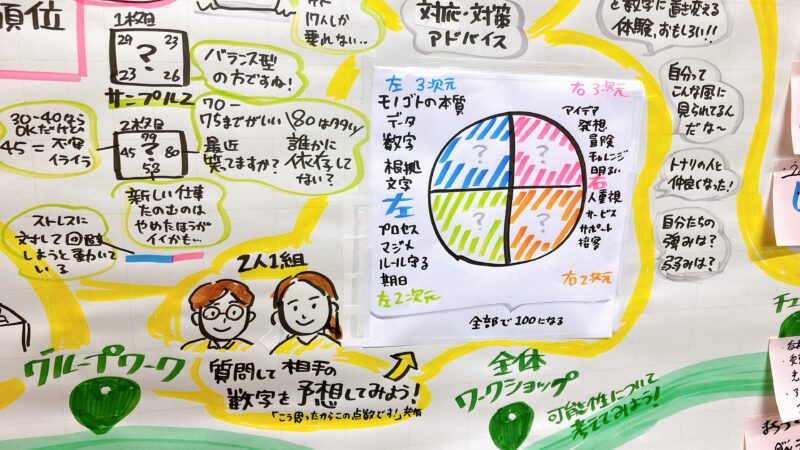 順位
1枚目
29 23
?
23 26
サンプルZ
バランス型
の方ですね!
17人しか
乗れない…
対応・対策
アドバイス
と数字に置き変える
体験、おもしろい!!
30-40なら
OKだけど
45=不安
イライラ
2枚目
99
45 ? 80
58
70-
75までがいい
最近
笑ってますか?
80はタカい
誰かに
依存して
ない?
新しい仕事
たのむのは
やめたほうが
イイかも…
ストレスに
対して回避
しようと動いて
いる
2人1組
左 3次元
モノゴトの本質
データ
数字
根拠
文字
左
プロセス
マジメ
ルール守る
期日
左2次元
右3次元
アイデア
発想
冒険
チャレンジ
明るい
右
人重視
サービス
サポート
接客
右2次元
? ?
? ?
全部で100になる
自分って
こんな風に
見られてるん
だな~
トナリの人と
仲良くなった!
自分たちの
強みは?
弱みは?
グループワーク
質問して相手の
数字を予想してみよう!
「こう思ったからこの点数です!」共有
全体
ワークショップ
可能性について
考えてみよう!